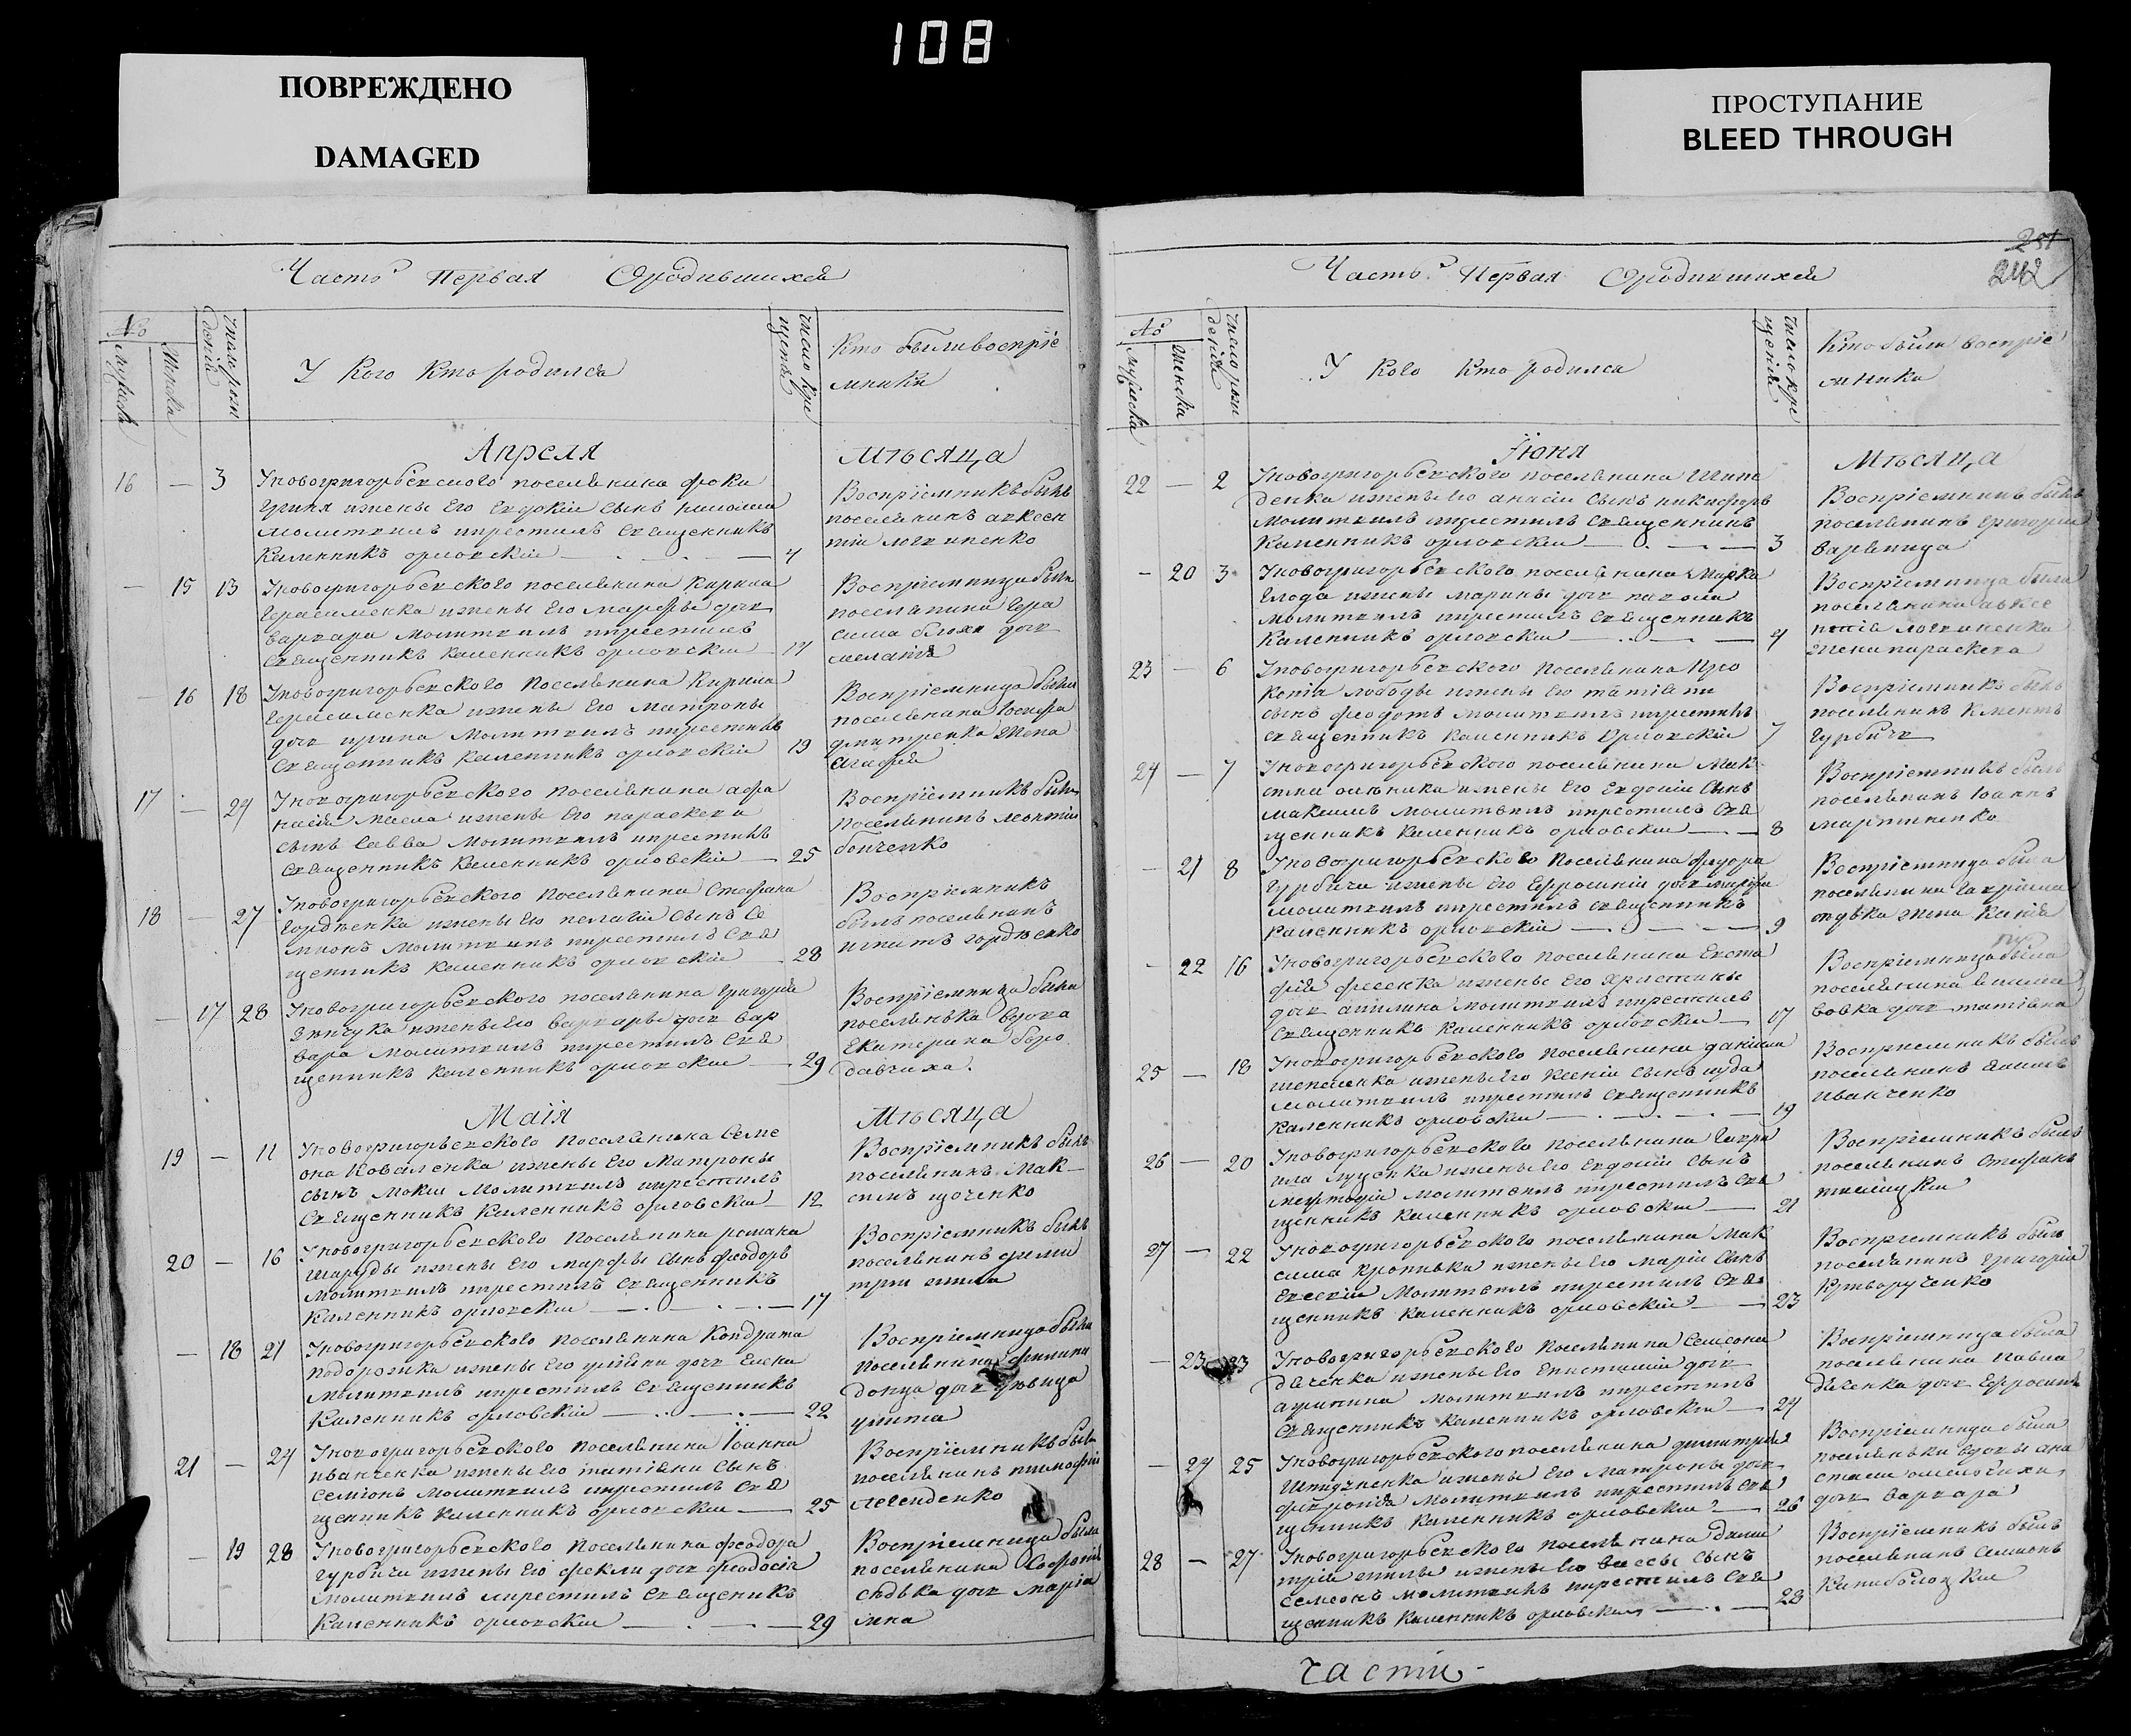 108
ПОВРЕЖДЕНО
DAMAGED
ПРОСТУПАНИЕ
BLEED THROUGH
Часть Первая Ородившихся
№
Мужеска
Женска
Число рож
деній
У кого кто родился
Число кре
щенія
Кто были воспріе
мники
Апреля
Мѣсяца
16 — 3 Уновогригорьевского поселянина фоки
изжены Его Евдокіи сынъ
молитвилъ икрестилъ священникъ
Каленникъ орловскій — 4
Воспріемникъ былъ
поселянинъ авксен
тій логвиненко
— 15 13 Уновогригорьевского поселянина Кирила
Герасименка изжены Его марфы дочь
варвара молитвилъ икрестилъ
священникъ каленникъ орловскій 14
Воспріемница была
поселянина Гера
сима блохи дочь
— 16 18 Уновогригорьевского поселянина Кирила
Герасименка изжены Его матроны
дочь ирина молитвилъ икрестилъ
священникъ каленникъ орловскій 19
Воспріемница была
поселянина
дмитренка жена
агафія
17 — 24 Уновогригорьевского поселянина афа
насія изжены Его параскева
сынъ савва молитвилъ икрестилъ
священникъ каленникъ орловскій — 25
Воспріемникъ былъ
поселянинъ леонтій
бонченко
18 — 27 Уновогригорьевского поселянина Стефана
Гордѣенка изжены Его пелагіи сынъ Се
міонъ молитвилъ икрестилъ свя
щенникъ каленникъ орловскій 28
Воспріемникъ
былъ поселянинъ
игнатъ гордѣенко
— 17 28 Уновогригорьевского поселянина григорія
изжены Его варвары дочь вар
вара молитвилъ икрестилъ свя
щенникъ каленникъ орловскій — 29
Воспріемница была
поселянка вдова
Екатерина боро
давчиха.
Маія
Мѣсяца
19 — 11 Уновогригорьевского поселянина Семе
она Коваленка изжены Его Матроны
сынъ мокій молитвилъ икрестилъ
священникъ каленникъ орловскій — 12
Воспріемникъ былъ
поселянинъ Мак-
симъ
20 — 16 Уновогригорьевского поселянина романа
Шаруды изжены Его марфы сынъ феодоръ
молитвилъ икрестилъ священникъ
каленникъ орловскій — 17
Воспріемникъ былъ
поселянинъ дими
трій
— 18 21 Уновогригорьевского поселянина Кондрата
подорожка изжены Его дочь Елена
молитвилъ икрестилъ священникъ
каленникъ орловскій — 22
Воспріемница была
поселянина филипа
донца дочь девица
улита
21 — 24 Уновогригорьевского поселянина Іоанна
иванченка изжены Его татіяни сынъ
Семіонъ молитвилъ икрестилъ свя
щенникъ каленникъ орловскій — 25
Воспріемникъ былъ
поселянинъ тимофій
легенденко
— 19 28 Уновогригорьевского поселянина феодора
гурбичи изжены Его феклы дочь феодосія
молитвилъ икрестилъ священикъ
каленникъ орловскій — 29
Воспріемница была
поселянина Софронія
сѣдька дочь маріа
мна
251
242
Часть Первая Ородившихся
№
Мужеска
Женска
Число рож
деній
У кого кто родился
Число кре
щенія
Кто были воспріе
мника
Іюня
Мѣсяца
22 — 2 Уновогригорьевского поселянина
денка изжены Его анасіи сынъ никифоръ
молитвилъ икрестилъ священникъ
каленникъ орловскій — 3
Воспріемникъ былъ
поселянинъ григорій
вареница
— 20 3 Уновогригорьевского поселянина Марка
изжены марины дочь
молитвилъ икрестилъ священникъ
каленникъ орловскій — 4
Воспріемница была
поселянина авксе
нтія логвиненка
жена параскева
23 — 6 Уновогригорьевского поселянина Про
копія лободы изжены Его татіяни
сынъ феодотъ молитвилъ икрестилъ
священникъ каленникъ орловскій 7
Воспріемникъ былъ
поселянинъ климентъ
гурбичъ
24 — 7 Уновогригорьевского поселянина Мак
сима изжены Его Евдокіи сынъ
максимъ молитвилъ икрестилъ свя
щенникъ каленникъ орловскій — 8
Воспріемникъ былъ
поселянинъ Іоаннъ
мартиненко
— 21 8 Уновогригорьевского поселянина федора
гурбичи изжены Его Ефросиніи дочь
молитвилъ икрестилъ священникъ
каленникъ орловскій — 9
Воспріемница была
поселянина гавріила
жена
— 22 16 Уновогригорьевского поселянина Евста
фія изжены Его христины
дочь акилина молитвилъ икрестилъ
священникъ каленникъ орловскій — 17
Воспріемница была
поселянина
вовка дочь татіяна
25 — 18 Уновогригорьевского поселянина даніила
шепеленка изжены Его Ксеніи сынъ іуда
молитвилъ икрестилъ священникъ
каленникъ орловскій — 19
Воспріемникъ былъ
поселянинъ
иванченко
26 — 20 Уновогригорьевского поселянина гаври
ила луценка изжены Его Евдокіи сынъ
мефтодій молитвилъ икрестилъ свя
щенникъ каленникъ орловскій — 21
Воспріемникъ былъ
поселянинъ Стефанъ
27 — 22 Уновогригорьевского поселянина Мак
сима кропивка изжены Его Маріи сынъ
Евсевій молитвилъ икрестилъ свя
щенникъ каленникъ орловскій — 23
Воспріемникъ былъ
поселянинъ григорій
криворученко
— 23 23 Уновогригорьевского поселянина Семіона
дяченка изжены Его Епистиміи дочь
акулина молитвилъ икрестилъ
священникъ каленникъ орловскій — 24
Воспріемница была
поселянина павла
дяченка дочь Ефросинія
— 24 25 Уновогригорьевского поселянина димитрія
изжены Его Матроны дочь
февронія молитвилъ икрестилъ свя
щенникъ каленникъ орловскій 26
Воспріемница была
поселянки вдовы ана
стасіи
дочь варвара
28 — 27 Уновогригорьевского поселянина дими
трія изжены Его вассы сынъ
Семеонъ молитвилъ икрестилъ свя
щенникъ каленникъ орловскій — 28
Воспріемникъ былъ
поселянинъ Семіонъ
части